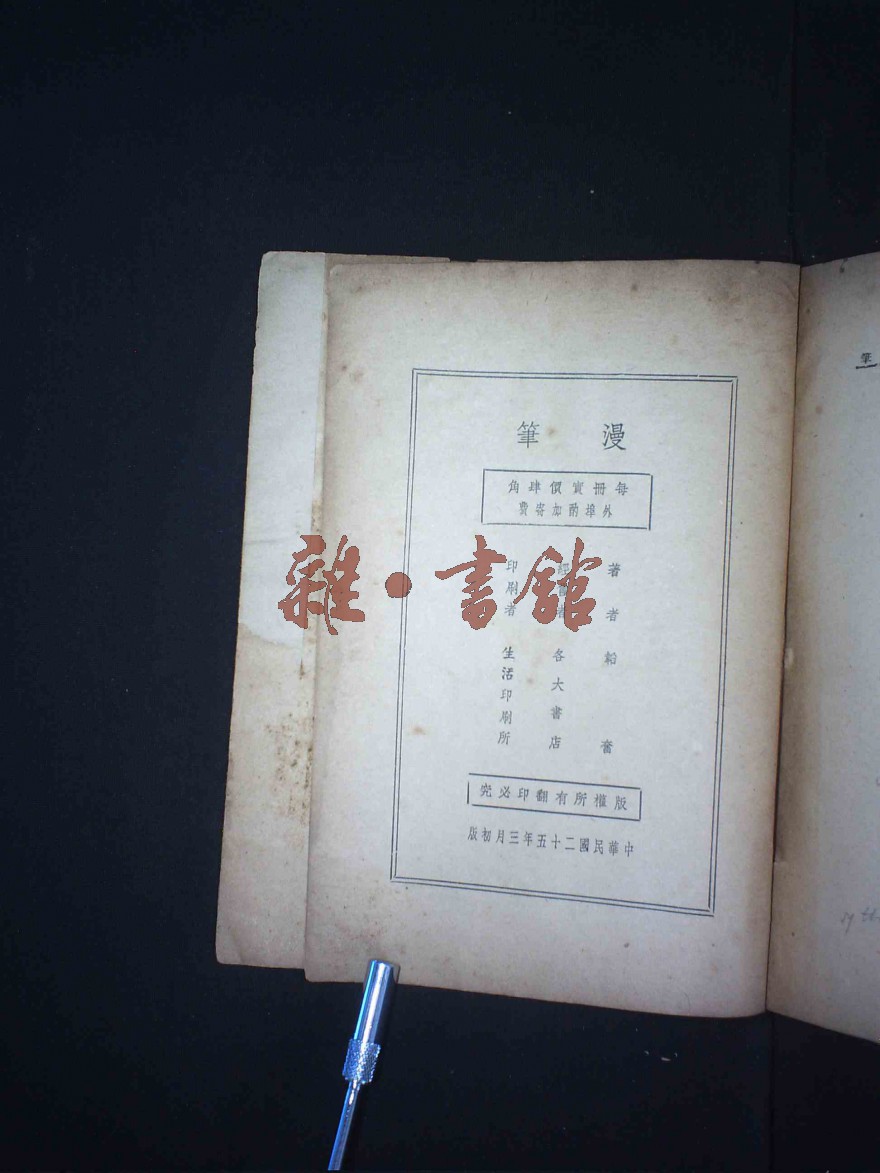 漫筆
每冊實價肆角
外埠酌加寄費
著者 韜奮
經售者 各大書店
印刷者 生活印刷所
版權所有翻印必究
中華民國二十五年三月初版
雜·書館
筆